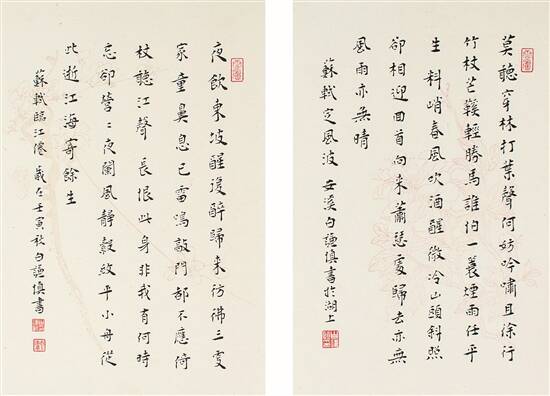 莫聽穿林打葉聲何妨吟嘯且徐行
竹杖芒鞵輕勝馬誰怕一蓑煙雨任平
生料峭春風吹酒醒微冷山頭斜照
卻相迎回首向來蕭瑟處歸去亦無
風雨亦無晴
蘇軾定風波 安溪白謙慎書於湖上
夜飲東坡醒復醉歸來彷佛三更
家童鼻息已雷鳴敲門都不應倚
杖聽江聲長恨此身非我有何時
忘卻營〻夜闌風靜縠紋平小舟從
此逝江海寄餘生
蘇軾臨江僊 歲在壬寅秋白謙慎書